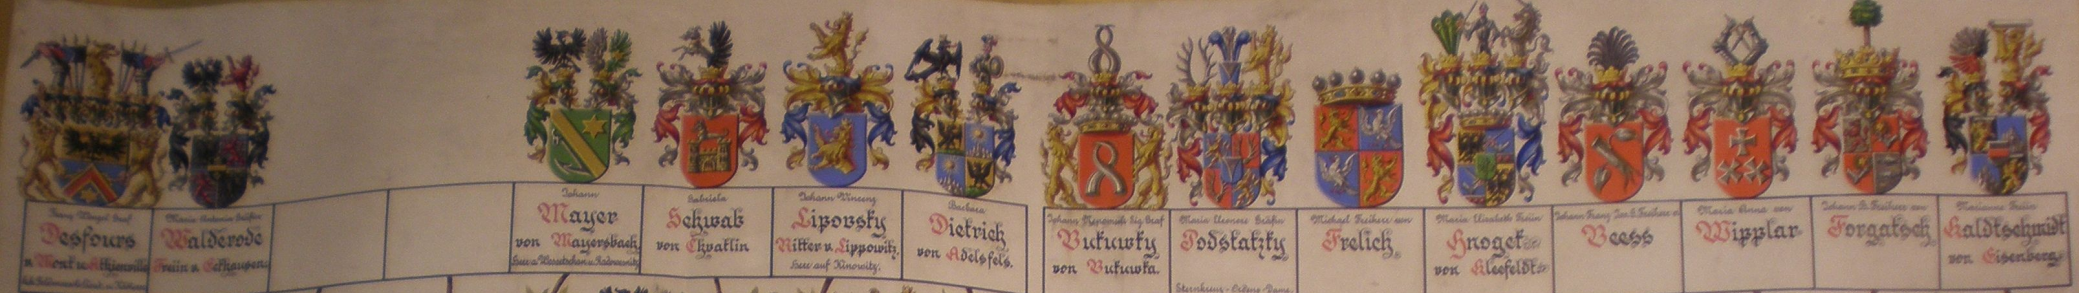 Franz Wenzel Graf
Desfours
v. Mont u. Athienville
Maria Antonia Gräfin
Walderode
Freiin v. Eckhausen
Johann
Mayer
von Mayersbach
Gabriela
Schwab
von Chvatlin
Johann Vinzenz
Lipovsky
Ritter v. Lippowitz.
Herr auf Kinowitz.
Barbara
Dietrich
von Adelsfels.
Johann Graf
Bukuwky
von Bukuwka.
Maria Gräfin
Podstatzky
Sternkreuz-Ordens-Dame
Michael Freiherr von
Frelich
Maria Elisabeth Freiin
Hnogek
von Kleefeldt
Johann Franz Freiherr v.
Beess
Maria Anna von
Wipplar
Johann Freiherr von
Forgatsch
Marianna Freiin
Kaldtschmidt
von Eisenberg